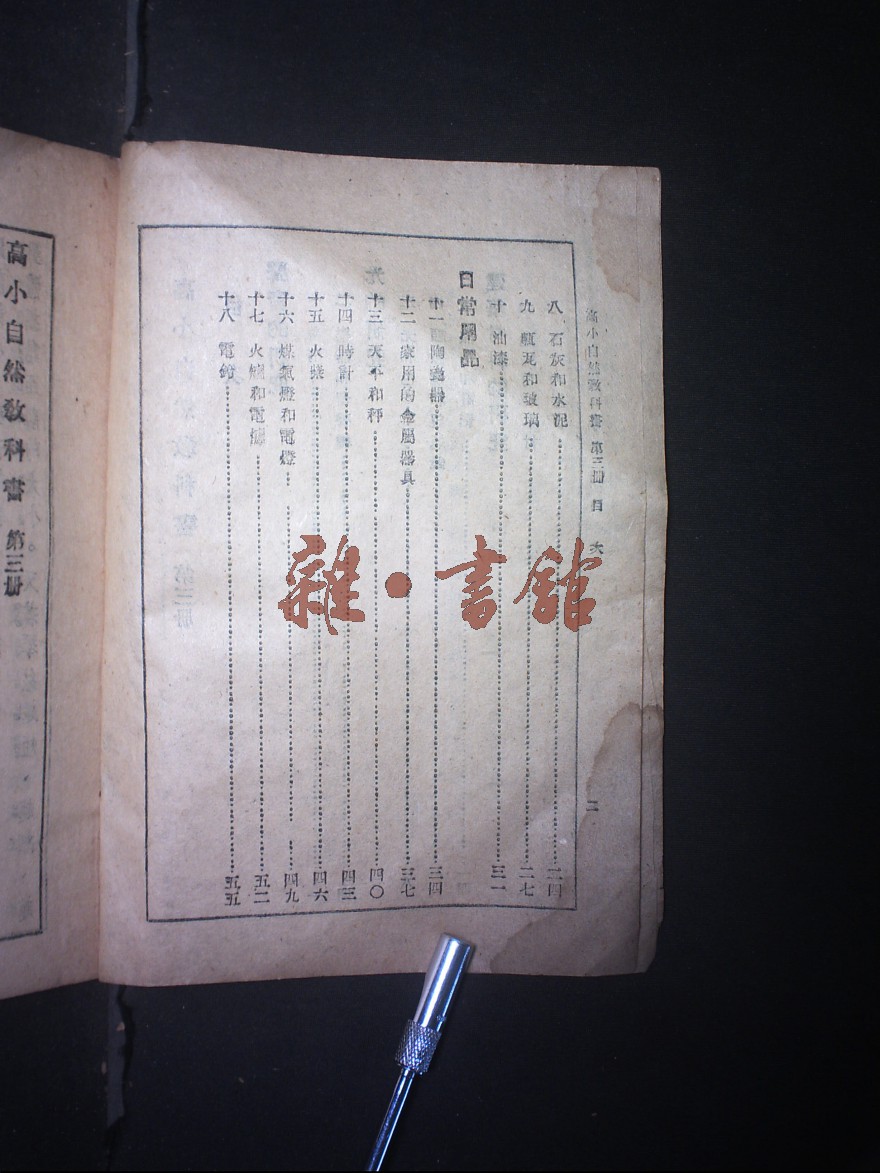 高小自然敎科書 第三册 目 次
二
八 石灰和水泥 二四
九 甎瓦和玻璃 二七
十 油漆 三一
日常用品
十一 陶瓷器 三四
十二 家用的金屬器具 三七
十三 天平和秤 四〇
十四 時計 四三
十五 火柴 四六
十六 煤氣燈和電燈 四九
十七 火爐和電爐 五二
十八 電鈴 五五
高小自然敎科書 第三册
雜·書館